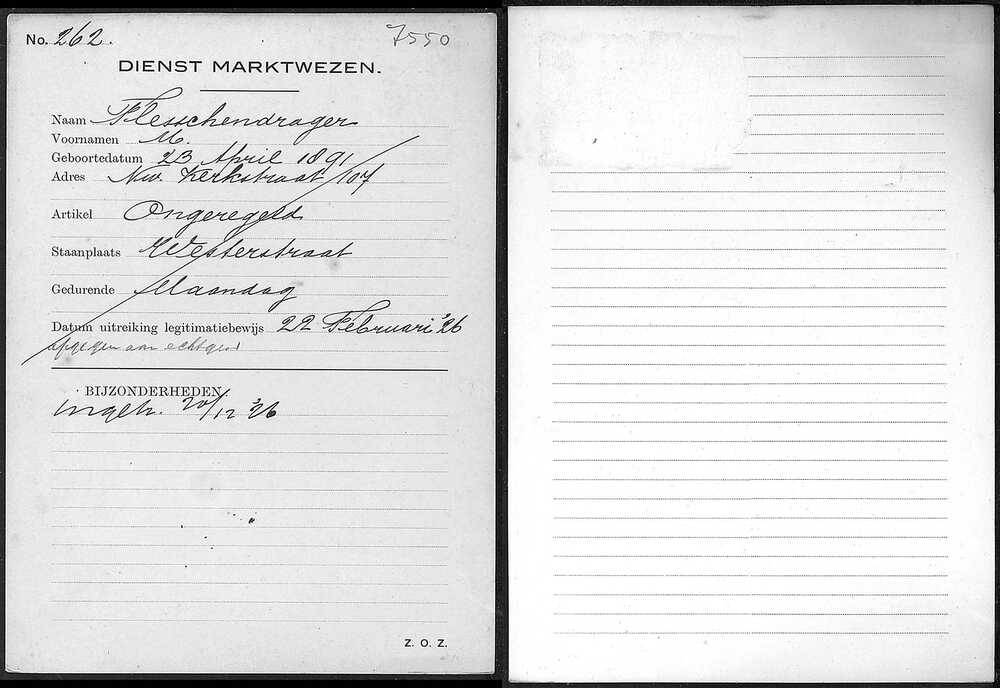 No. 262. 7550
DIENST MARKTWEZEN.
Naam Flesschendrager
Voornamen M.
Geboortedatum 23 April 1891
Adres Nw. Kerkstraat 107
Artikel Ongeregeld
Staanplaats Westerstraat
Gedurende Maandag
Datum uitreiking legitimatiebewijs 22 Februari '26
aan
BIJZONDERHEDEN
Ingetr. 20/12 '26
Z. O. Z.